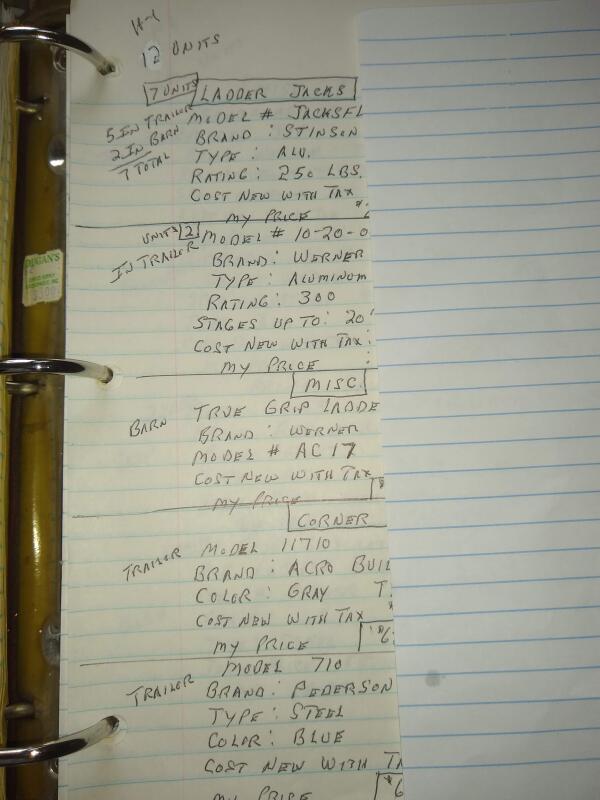 H-1
12 UNITS
7 UNITS LADDER JACKS
5 IN TRAILER MODEL # JACKSFL
2 IN BARN BRAND : STINSON
7 TOTAL TYPE : ALU.
RATING : 250 LBS.
COST NEW WITH TAX
MY PRICE
UNITS 2 MODEL # 10-20-0
IN TRAILER BRAND : WERNER
TYPE : ALUMINUM
RATING : 300
STAGES UP TO : 20'
COST NEW WITH TAX :
MY PRICE :
MISC.
BARN TRUE GRIP LADDE
BRAND : WERNER
MODEL # AC 17
COST NEW WITH TAX
MY PRICE
CORNER
TRAILOR MODEL 11710
BRAND : ACRO BUIL
COLOR : GRAY T.
COST NEW WITH TAX
MY PRICE $6
MODEL 710
TRAILOR BRAND : PEDERSON
TYPE : STEEL
COLOR : BLUE
COST NEW WITH TA
MY PRICE $6
DUGAN'S